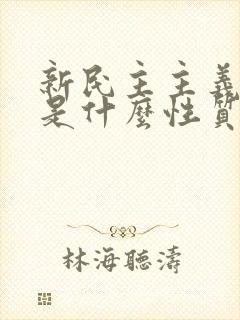 新民主主義
是什麼性質
林海聽濤